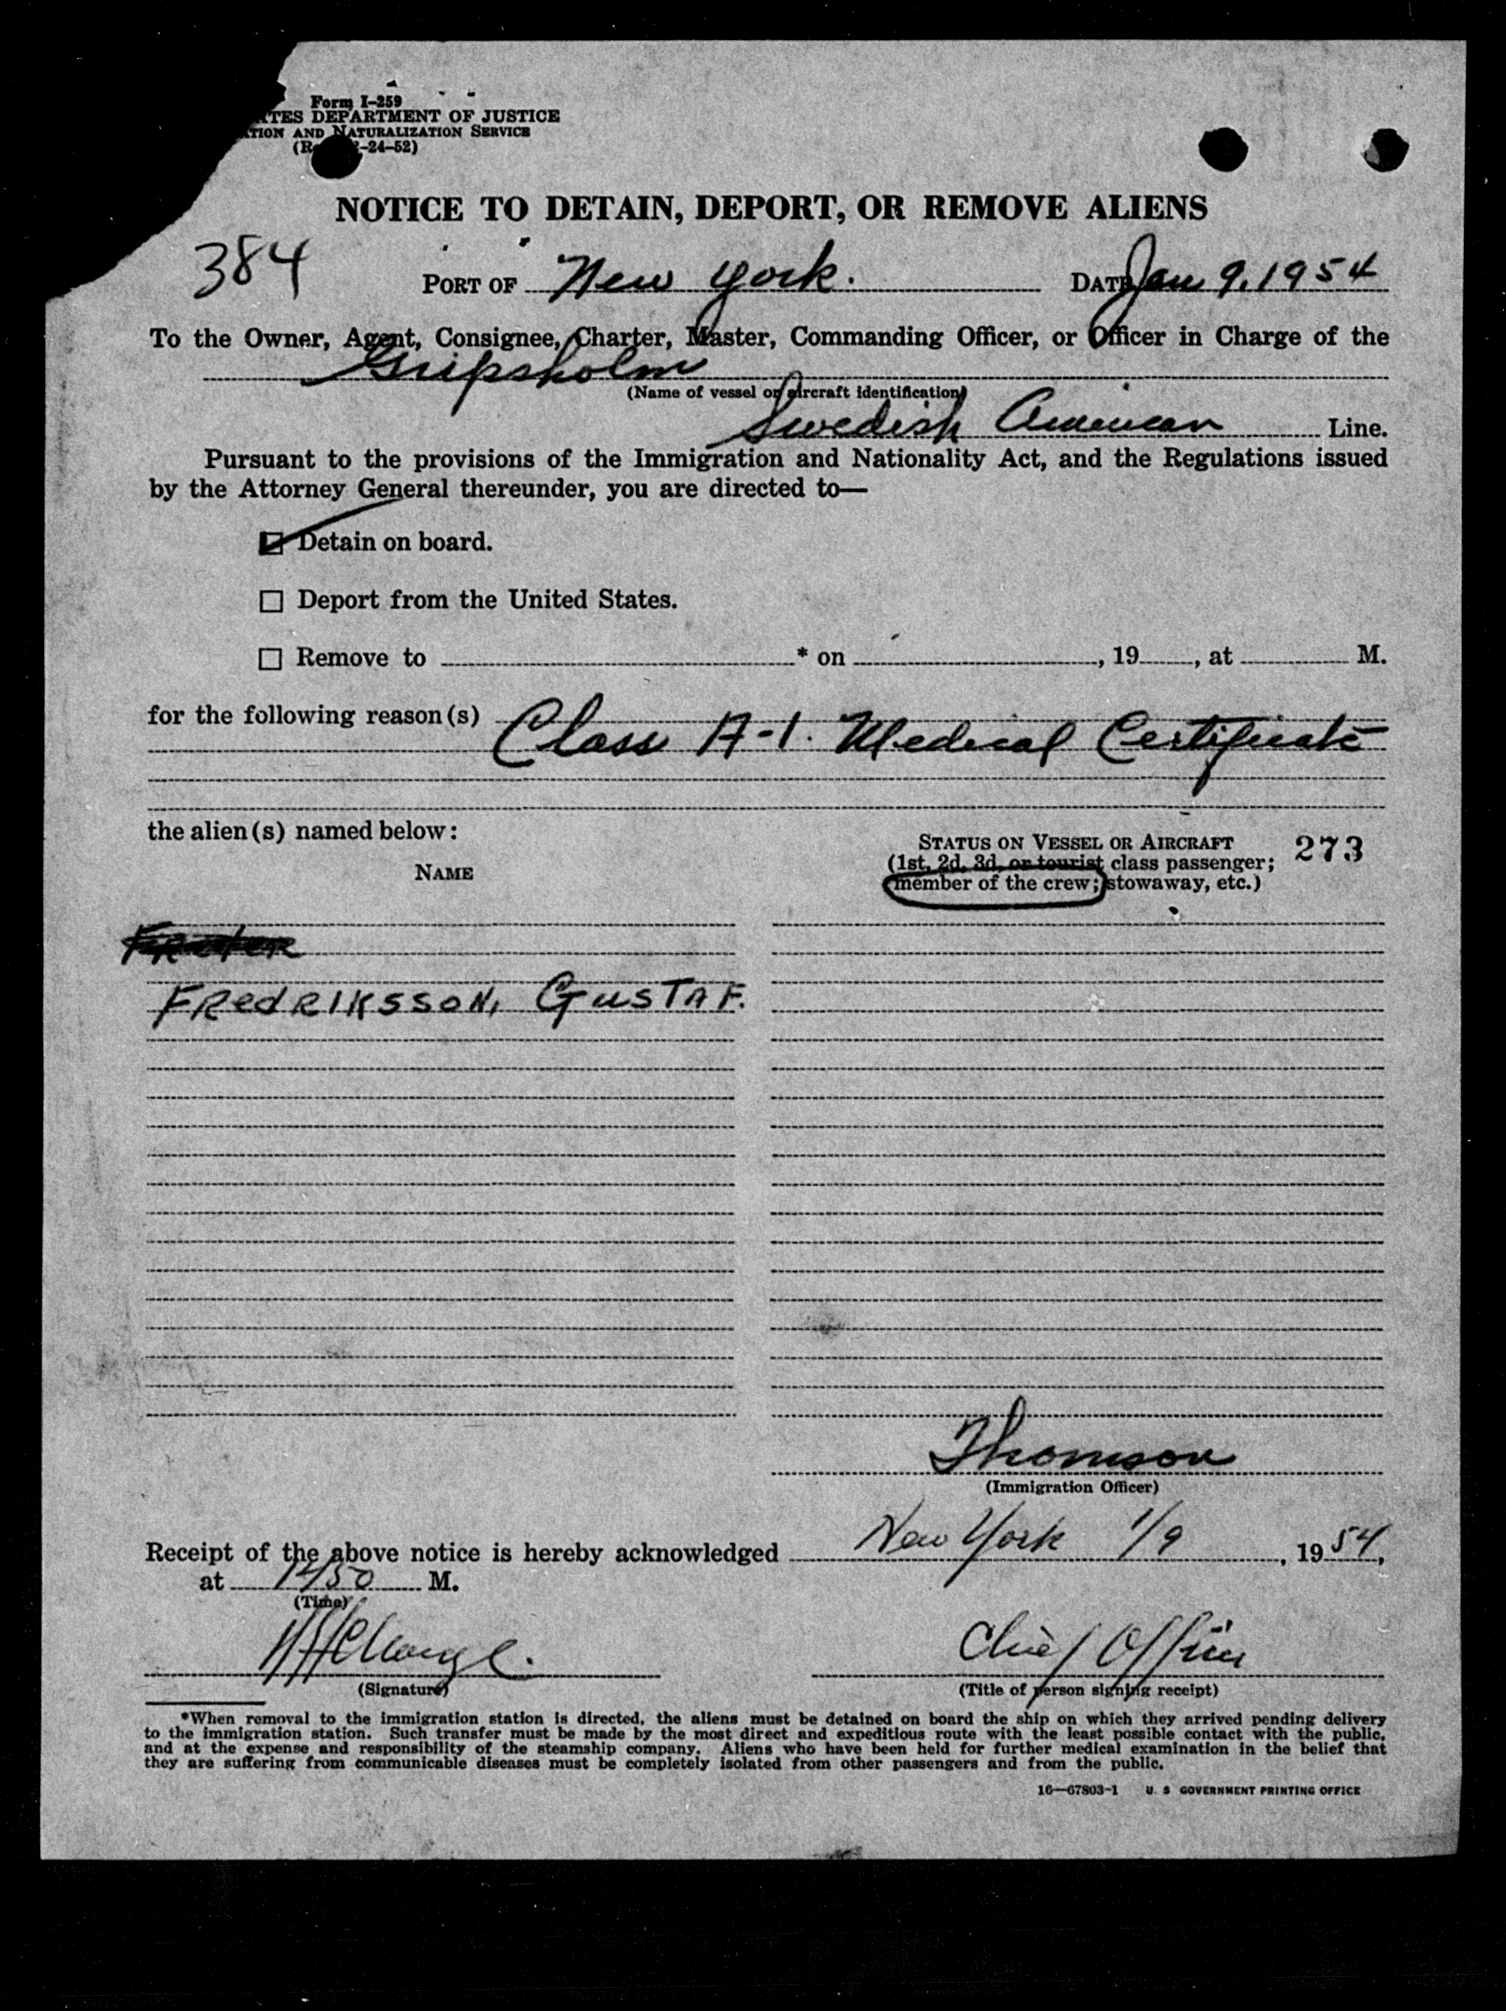 Form I-259
TES DEPARTMENT OF JUSTICE
TION AND NATURALIZATION SERVICE
-24-52)
NOTICE TO DETAIN, DEPORT, OR REMOVE ALIENS
384 PORT OF New York. DATE Jan 9, 1954
To the Owner, Agent, Consignee, Charter, Master, Commanding Officer, or Officer in Charge of the
Gripsholm
(Name of vessel or aircraft identification)
Swedish American Line.
Pursuant to the provisions of the Immigration and Nationality Act, and the Regulations issued
by the Attorney General thereunder, you are directed to—
Detain on board.
Deport from the United States.
Remove to * on , 19 , at M.
for the following reason(s) Class A-1. Medical Certificate
the alien(s) named below:
STATUS ON VESSEL OR AIRCRAFT 273
NAME (1st, 2d, 3d, or tourist class passenger;
member of the crew; stowaway, etc.)
FREDRIKSSON, GUSTAF.
Thomson
(Immigration Officer)
Receipt of the above notice is hereby acknowledged New York 1/9, 1954,
at 1450 M.
(Time)
Chief Officer
(Signature) (Title of person signing receipt)
*When removal to the immigration station is directed, the aliens must be detained on board the ship on which they arrived pending delivery
to the immigration station. Such transfer must be made by the most direct and expeditious route with the least possible contact with the public,
and at the expense and responsibility of the steamship company. Aliens who have been held for further medical examination in the belief that
they are suffering from communicable diseases must be completely isolated from other passengers and from the public.
16—67803-1 U. S GOVERNMENT PRINTING OFFICE